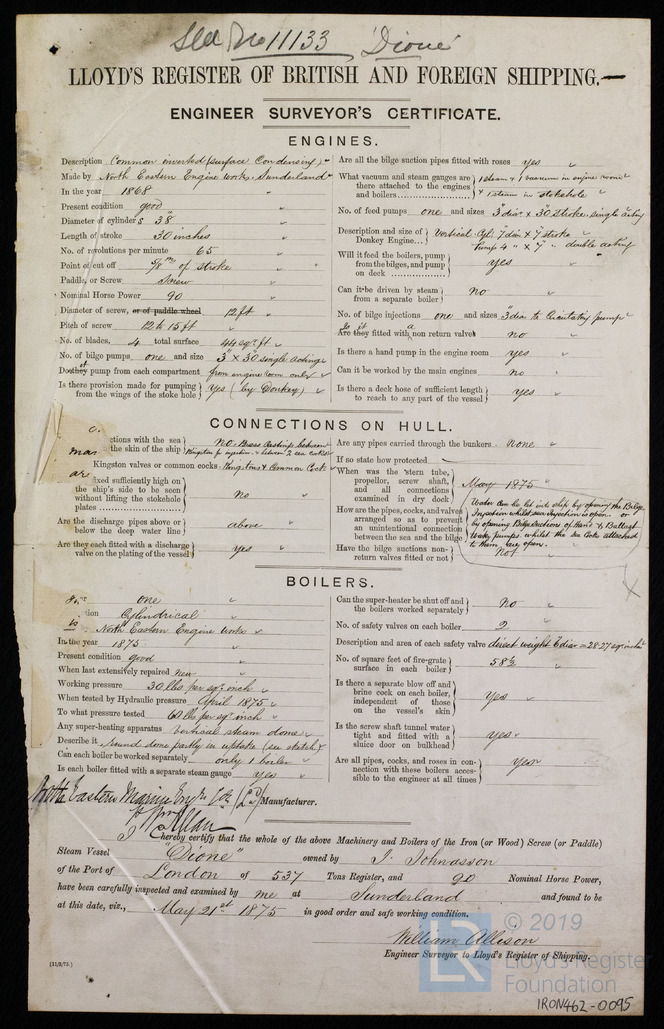 See No 11133 'Dione'
LLOYD'S REGISTER OF BRITISH AND FOREIGN SHIPPING.
ENGINEER SURVEYOR'S CERTIFICATE.
ENGINES.
Description Common inverted (surface Condensing)
Made by North Eastern Engine works, Sunderland
In the year 1868
Present condition good
Diameter of cylinders 38"
Length of stroke 30 inches
No. of revolutions per minute 65
Point of cut off 5/8ths of stroke
Paddle, or Screw Screw
Nominal Horse Power 90
Diameter of screw, or of paddle wheel 12 ft
Pitch of screw 12 to 15 ft
No. of blades, 4 total surface 44 sq. ft
No. of bilge pumps one and size 3" x 30 single acting
Do they pump from each compartment from engine room only
Is there provision made for pumping from the wings of the stoke hole yes (by Donkey)
Are all the bilge suction pipes fitted with roses yes
What vacuum and steam gauges are there attached to the engines and boilers 1 steam & 1 vacuum in engine room & 1 steam in stokehole
No. of feed pumps one and sizes 3" dia x 30 stroke single acting
Description and size of Donkey Engine Vertical Cyl. 7" dia x 7" stroke Pump 4" x 7" double acting
Will it feed the boilers, pump from the bilges, and pump on deck yes
Can it be driven by steam from a separate boiler no
No. of bilge injections one and sizes 3" dia to Circulating pump
Is it fitted with a non return valve no
Is there a hand pump in the engine room yes
Can it be worked by the main engines no
Is there a deck hose of sufficient length to reach to any part of the vessel yes
CONNECTIONS ON HULL.
ctions with the sea
the skin of the ship No. Brass castings between Kingston for injection & between 2 sea cocks
Kingston valves or common cocks Kingston & Common Cock
fixed sufficiently high on the ship's side to be seen without lifting the stokehole plates No
Are the discharge pipes above or below the deep water line above
Are they each fitted with a discharge valve on the plating of the vessel yes
Are any pipes carried through the bunkers none
If so state how protected
When was the stern tube, propeller, screw shaft, and all connections examined in dry dock May 1875
How are the pipes, cocks, and valves arranged so as to prevent an unintentional connection between the sea and the bilge Water can be let into ship by opening the Bilge Injection whilst sea Injection is open. or by opening Bilge suctions of Hand & Ballast tank pumps whilst the sea Cocks attached to them are open.
Have the bilge suctions non-return valves fitted or not Not
BOILERS.
one
tion Cylindrical
North Eastern Engine works
In the year 1875
Present condition good
When last extensively repaired new
Working pressure 30 lbs per sq. inch
When tested by Hydraulic pressure April 1875
To what pressure tested 60 lbs per sq. inch
Any super-heating apparatus vertical steam dome
Describe it, round dome partly in uptake (see sketch)
Can each boiler be worked separately only 1 boiler
Is each boiler fitted with a separate steam gauge yes
Can the super-heater be shut off and the boilers worked separately No
No. of safety valves on each boiler 2
Description and area of each safety valve direct weight 6 dia = 28.27 sq. inches
No. of square feet of fire-grate surface in each boiler 58½
Is there a separate blow off and brine cock on each boiler, independent of those on the vessel's skin yes
Is the screw shaft tunnel water tight and fitted with a sluice door on bulkhead yes
Are all pipes, cocks, and roses in connection with these boilers accessible to the engineer at all times yes
North Eastern Marine Engr. Co. (Ld) Manufacturer.
I hereby certify that the whole of the above Machinery and Boilers of the Iron (or Wood) Screw (or Paddle)
Steam Vessel "Dione" owned by J. Johnasson
of the Port of London of 537 Tons Register, and 90 Nominal Horse Power,
have been carefully inspected and examined by me at Sunderland and found to be
at this date, viz., May 21st 1875 in good order and safe working condition.
William Allison
Engineer Surveyor to Lloyd's Register of Shipping.
(11/2/75.)
© 2019
Lloyd's Register
Foundation
IRON462-0095